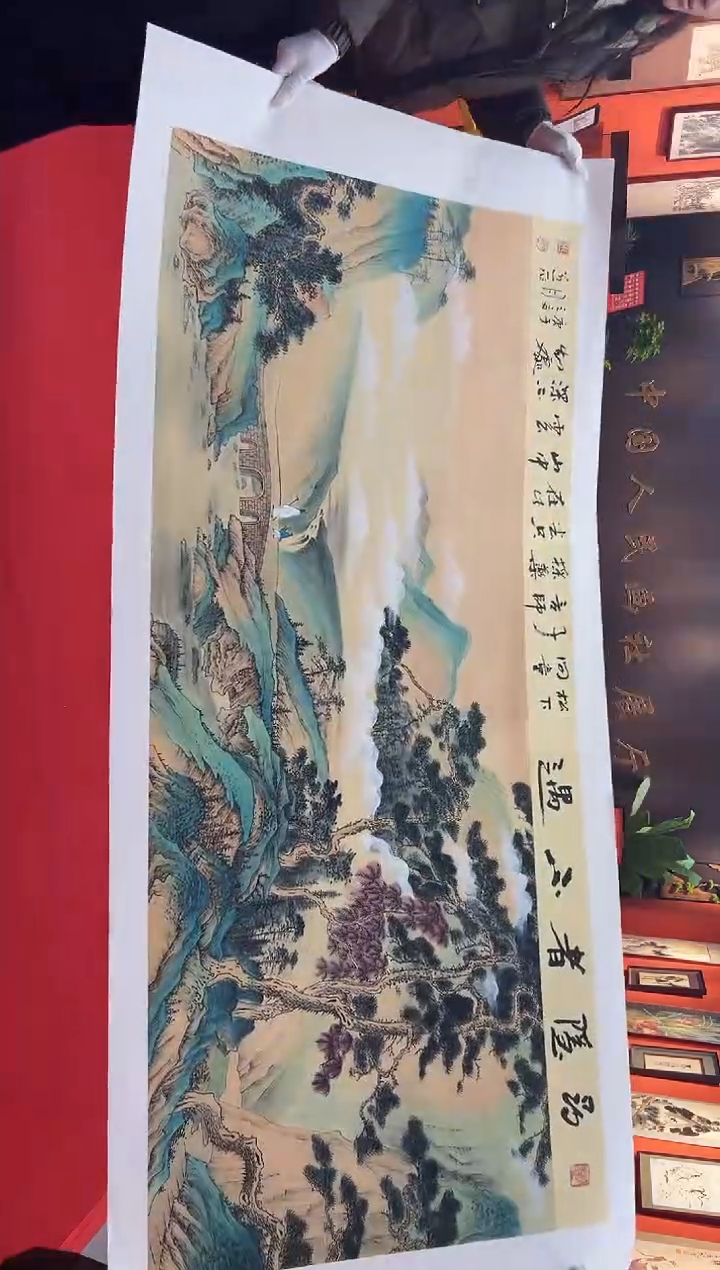 寻隐者不遇
松下
问童
子
言师
採药
去只
在此
山中
雲
深不
知處
中国人民画社展厅